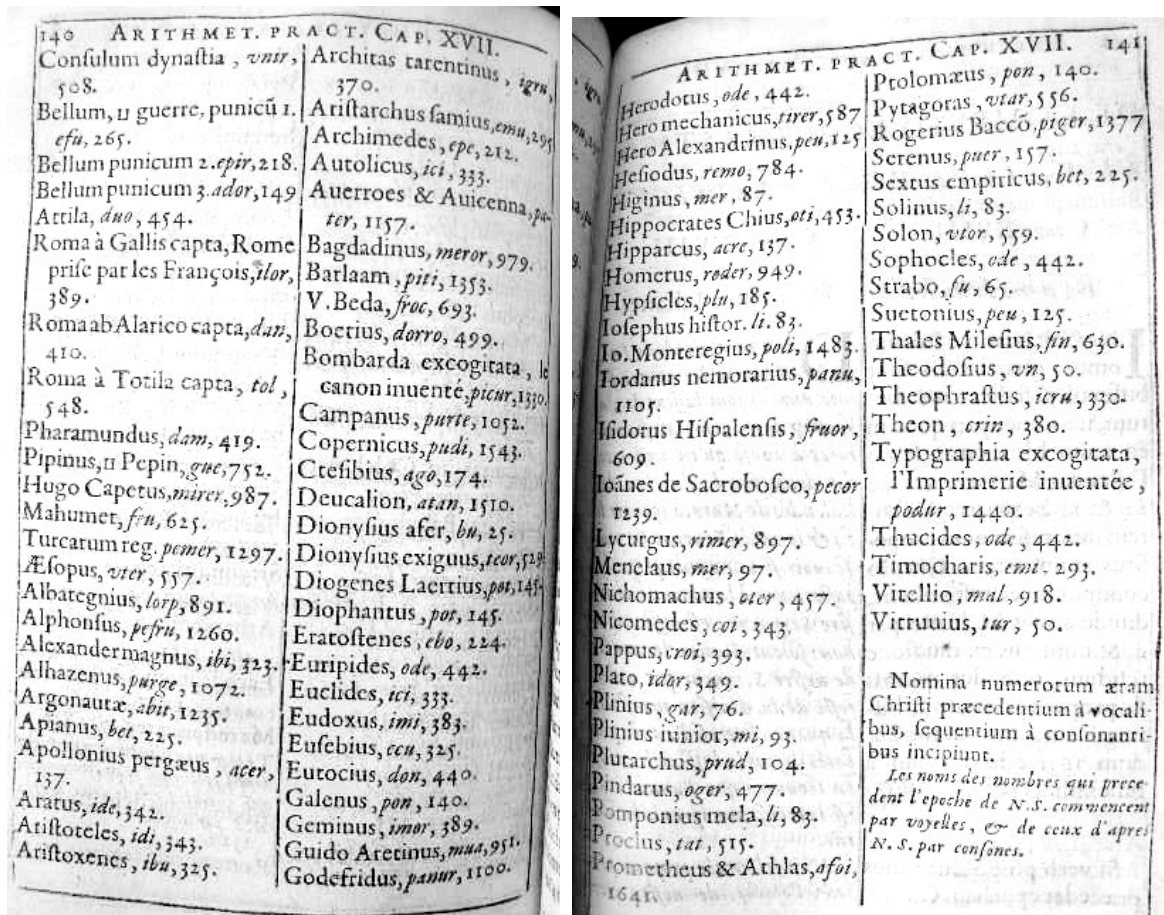 140 ARITHMET. PRACT. CAP. XVII.
Conſulum dynaſtia, vnir,
508.
Bellum, ␣ guerre, punicũ 1.
efu, 265.
Bellum punicum 2. epir, 218.
Bellum punicum 3. ador, 149
Attila, duo, 454.
Roma à Gallis capta, Rome
priſe par les François, ilor,
389.
Roma ab Alarico capta, dan,
410.
Roma à Totila capta, tol,
548.
Pharamundus, dam, 419.
Pipinus, ␣ Pepin, gue, 752.
Hugo Capetus, mirer, 987.
Mahumet, ſru, 625.
Turcarum reg. pemer, 1297.
Æſopus, vter, 557.
Albategnius, lorp, 891.
Alphonſus, peſru, 1260.
Alexander magnus, ibi, 323.
Alhazenus, purge, 1072.
Argonautæ, abit, 1235.
Apianus, bet, 225.
Apollonius pergæus, acer,
137.
Aratus, ide, 342.
Ariſtoteles, idi, 343.
Ariſtoxenes, ibu, 325.
Architas tarentinus, igru,
370.
Ariſtarchus ſamius, emu, 295
Archimedes, epe, 212.
Autolicus, ici, 333.
Auerroes & Auicenna, pa-
ter, 1157.
Bagdadinus, meror, 979.
Barlaam, piti, 1353.
V. Beda, froc, 693.
Boetius, dorro, 499.
Bombarda excogitata, le
canon inuenté, picur, 1330.
Campanus, purte, 1052.
Copernicus, pudi, 1543.
Cteſibius, ago, 174.
Deucalion, atan, 1510.
Dionyſius afer, bu, 25.
Dionyſius exiguus, teor, 529.
Diogenes Laertius, pot, 145.
Diophantus, pot, 145.
Eratoſtenes, ebo, 224.
Euripides, ode, 442.
Euclides, ici, 333.
Eudoxus, imi, 383.
Euſebius, ecu, 325.
Eutocius, don, 440.
Galenus, pon, 140.
Geminus, imor, 389.
Guido Aretinus, mua, 951.
Godefridus, panur, 1100.
ARITHMET. PRACT. CAP. XVII. 141
Herodotus, ode, 442.
Hero mechanicus, tirer, 587
Hero Alexandrinus, peu, 125
Heſiodus, remo, 784.
Higinus, mer, 87.
Hippocrates Chius, oti, 453.
Hipparcus, acre, 137.
Homerus, roder, 949.
Hypſicles, plu, 185.
Ioſephus hiſtor. li. 83.
Io. Monteregius, poli, 1483.
Iordanus nemorarius, panu,
1105.
Iſidorus Hiſpalenſis, fruor,
609.
Ioãnes de Sacroboſco, pecor
1239.
Lycurgus, rimer, 897.
Menelaus, mer, 97.
Nichomachus, oter, 457.
Nicomedes, coi, 343.
Pappus, croi, 393.
Plato, idor, 349.
Plinius, gar, 76.
Plinius iunior, mi, 93.
Plutarchus, prud, 104.
Pindarus, oger, 477.
Pomponius mela, li, 83.
Proclus, tat, 515.
Prometheus & Athlas, afoi,
1641.
Ptolomæus, pon, 140.
Pytagoras, vtar, 556.
Rogerius Baccõ, piger, 1377
Serenus, puer, 157.
Sextus empiricus, bet, 225.
Solinus, li, 83.
Solon, vtor, 559.
Sophocles, ode, 442.
Strabo, ſu, 65.
Suetonius, peu, 125.
Thales Mileſius, ſin, 630.
Theodoſius, vn, 50.
Theophraſtus, icru, 330.
Theon, crin, 380.
Typographia excogitata,
l'Imprimerie inuentée,
podur, 1440.
Thucides, ode, 442.
Timocharis, emi, 293.
Vitellio, mal, 918.
Vitruuius, tur, 50.
Nomina numerorum æram
Chriſti præcedentium à vocali-
bus, ſequentium à conſonanti-
bus incipiunt.
Les noms des nombres qui prece-
dent l'epoche de N.S. commencent
par voyelles, & de ceux d'apres
N.S. par conſones.